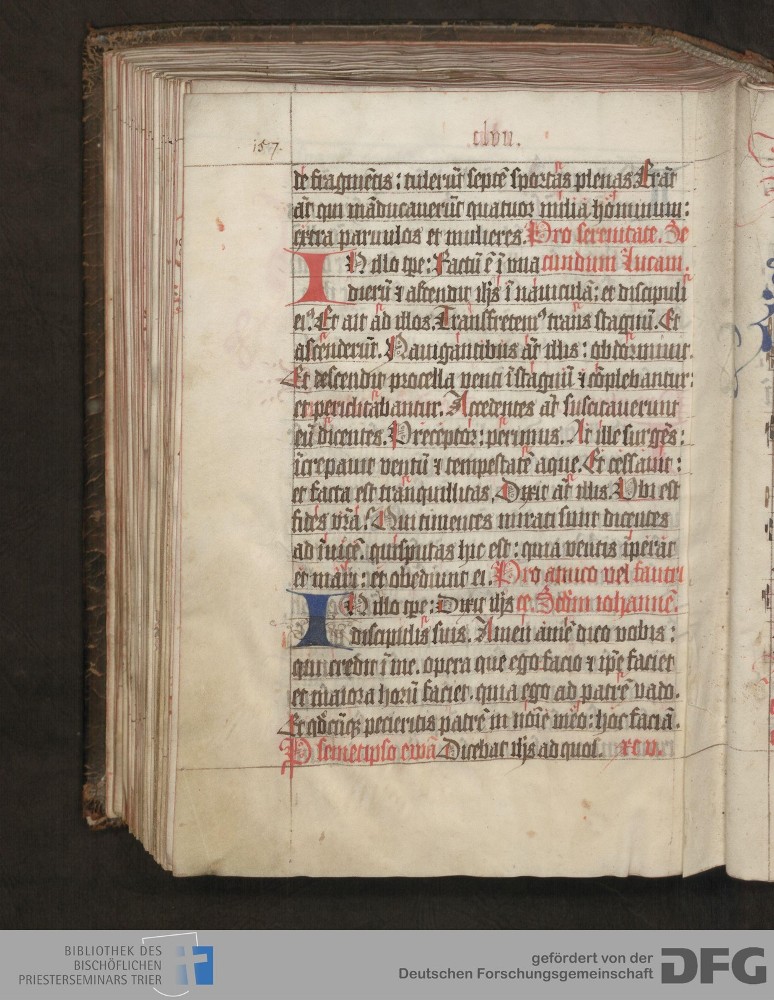 157.
clvii.
de fragmētis: tulerūt septē sportas plenas. Erāt
āt qui māducauerūt quatuor milia hominum:
extra paruulos et mulieres. Pro serenitate. Se
IN illo tpe: Factū ē ī vna cundum Lucam.
dierū ⁊ ascendit ihs̄ ī nauiculā: et discipuli
eiꝰ. Et ait ad illos. Transfretemꝰ trans stagnū. Et
ascenderūt. Nauigantibus āt illis: obdormiuit.
Et descendit procella venti ī stagnū ⁊ cōplebantur:
et periclitabantur. Accedentes āt suscitauerunt
eū dicentes. Preceptor: perimus. At ille surgēs:
īcrepauit ventū ⁊ tempestatē aque. Et cessauit:
et facta est tranquillitas. Dixit āt illis. Vbi est
fides vrā? Qui timentes mirati sunt dicentes
ad īuicē. quis putas hic est: quia ventis īperat
et mari: et obediunt ei. Pro amico vel fautri
IN illo tpe: Dixit ihs̄ ce. Scdm iohannē.
discipulis suis. Amen amē dico vobis:
qui credit ī me. opera que ego facio ⁊ ipē faciet
et maiora horū faciet. quia ego ad patrē vado.
Et qdcūqꝫ petieritis patrē in noīe meo: hoc faciā.
P semetipso ewā Dicebat ihs̄ ad quos. xc v.
BIBLIOTHEK DES
BISCHÖFLICHEN
PRIESTERSEMINARS TRIER
gefördert von der
Deutschen Forschungsgemeinschaft
DFG